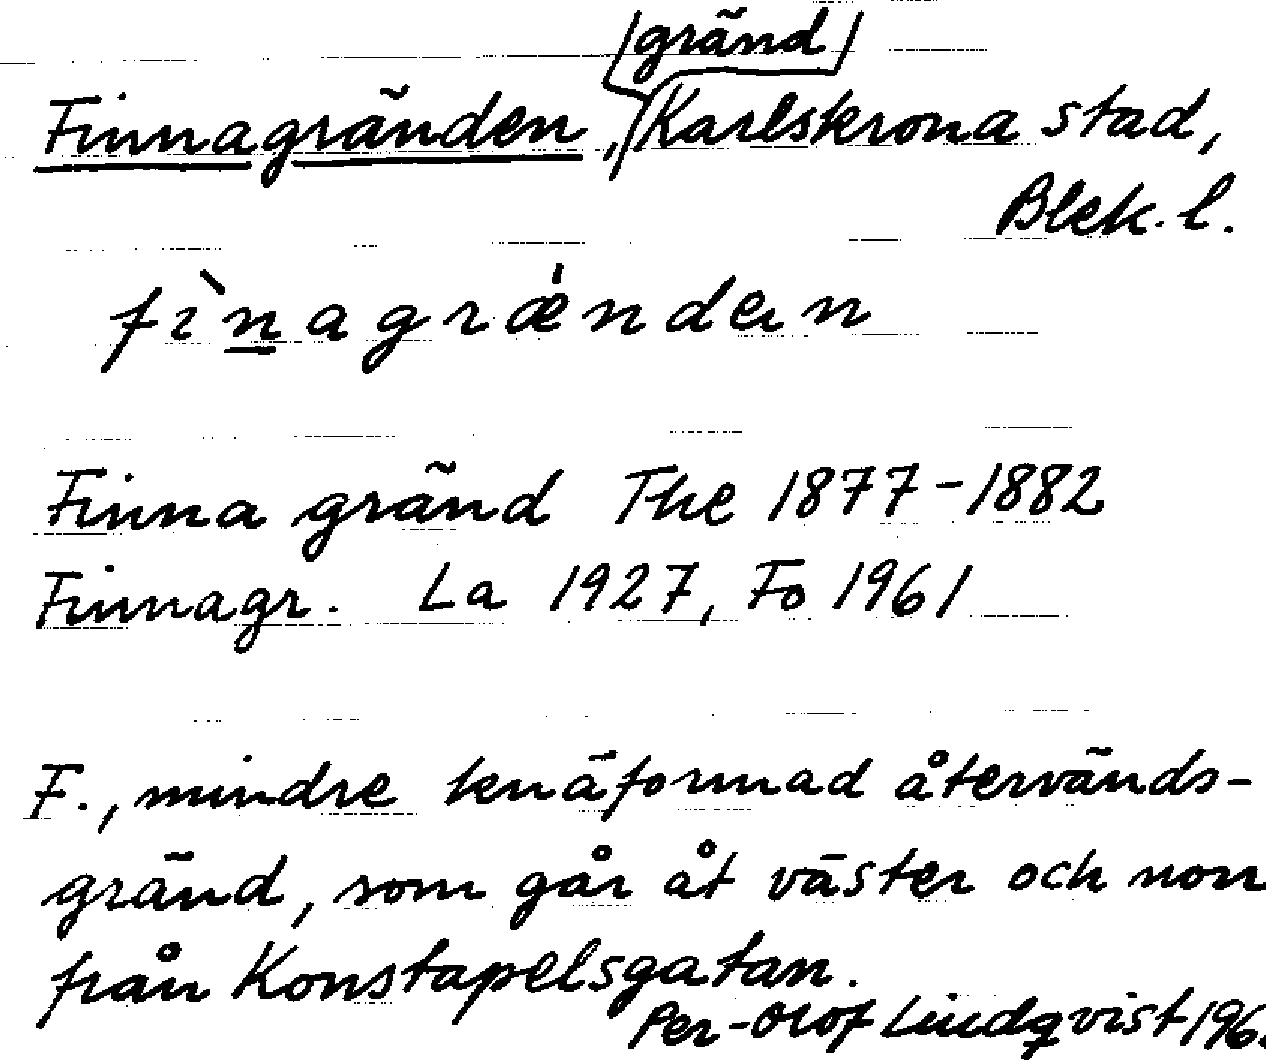 /gränd/
Finnagränden, Karlskrona stad,
Blek. l.
fìnagrǽndən
Finna gränd The 1877-1882
Finnagr. La 1927, Fo 1961
F., mindre knäformad återvänds-
gränd, som går åt väster och norr
från Konstapelsgatan.
Per-Olof Lindqvist 196